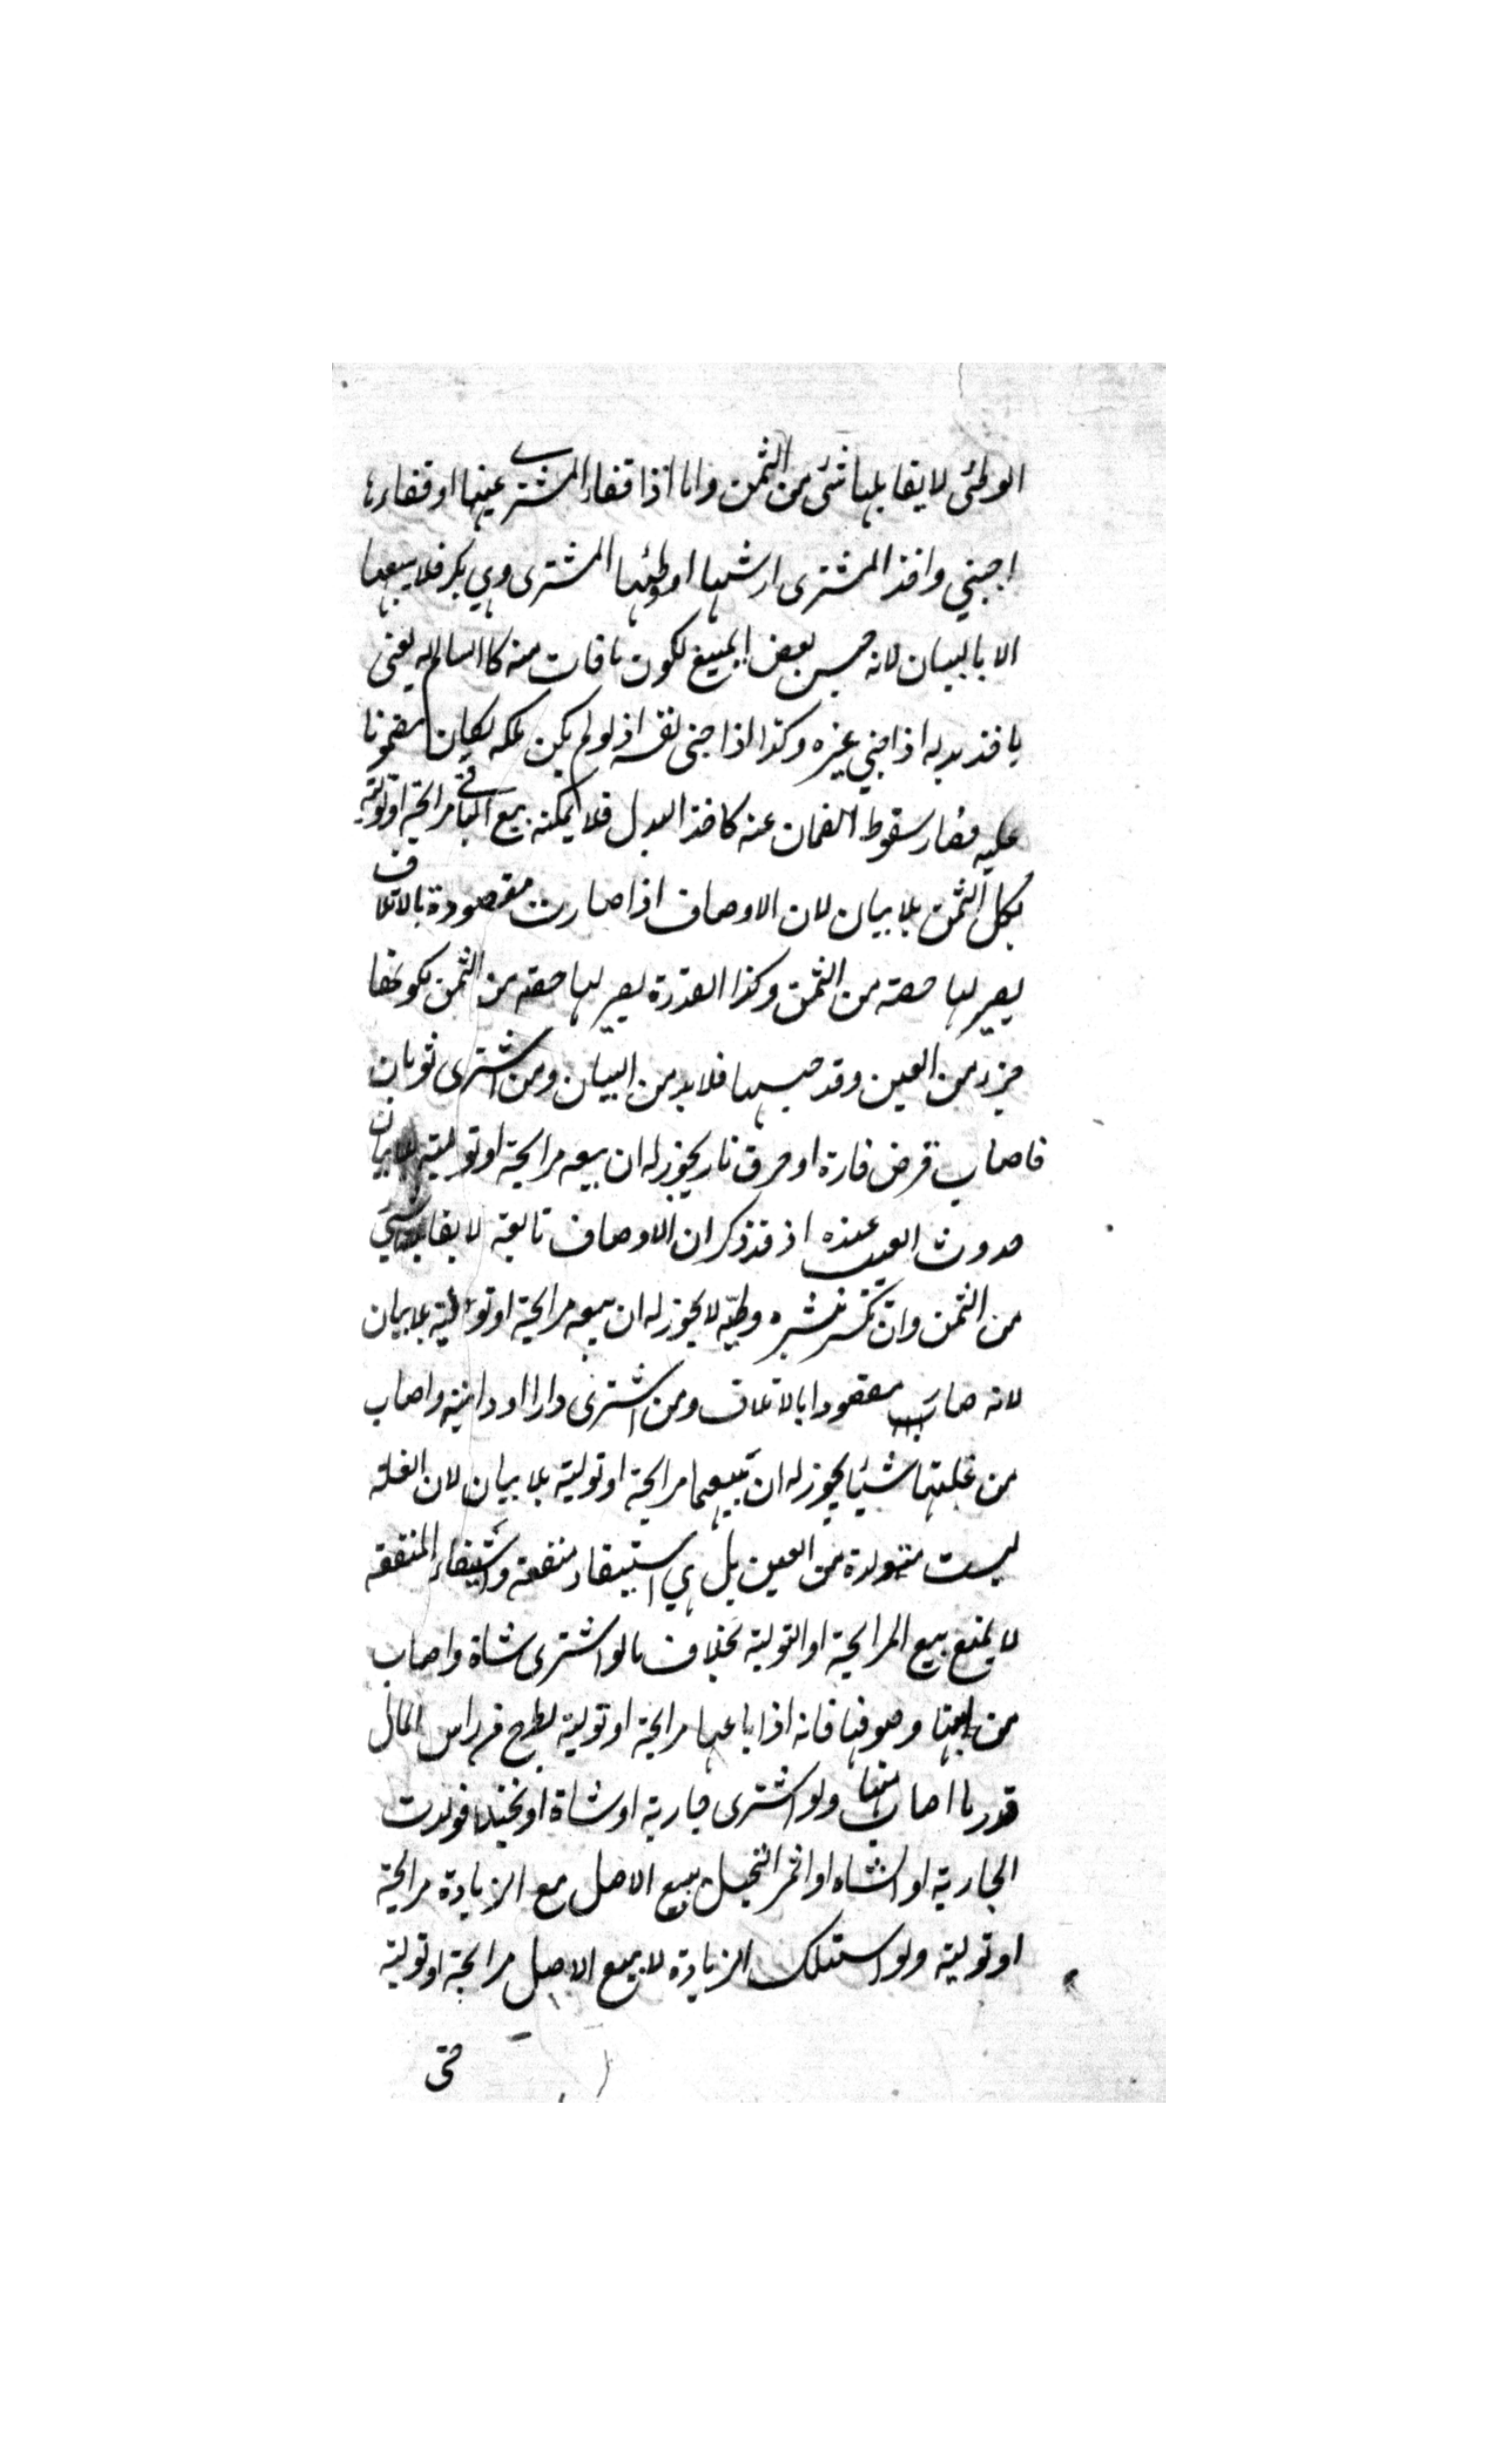 الوطئ لا يقابلها شئ من الثمن واما اذا فقاء المشتري عينها او فقاءها
اجنبي واخذ المشترى ارشها او وطئها المشترى وهي بكر فلا يبيعها
الا بالبيان لانه حبس بعض المبيع لكون ما فات منه كالسالم له يعنى
ياخذ بدله اذا جنى غيره وكذا اذا جنى نفسه اذ لو لم يكن ملكه لكان مضمونا
عليه فصار سقوط الضمان عنه كاخذ البدل فلا يمكنه بيع الباقي مرابحة او تولية
بكل الثمن بلا بيان لان الاوصاف اذا صارت مقصودة بالاتلاف
يصير لها حصة من الثمن وكذا العذرة يصير لها حصة من الثمن لكونها
جزء من العين وقد حبسها فلا بد من البيان ومن اشترى ثوبا
فاصاب قرض فارة او حرق نار يجوز له ان يبيعه مرابحة او تولية بلا بيان
حدوث العيب عنده اذ قد ذكر ان الاوصاف تابعة لا يقابلها شئ
من الثمن وان تكسر بنشره وطيّه لا يجوز له ان يبيعه مرابحة او تولية بلا بيان
لانه صار مقصودا بالاتلاف ومن اشترى دارا او دابة واصاب
من غلتها شيئا يجوز له ان يبيعهما مرابحة او تولية بلا بيان لان الغلة
ليست متولدة من العين بل هي استيفاء منفعة واستيفاء المنفعة
لا يمنع بيع المرابحة او التولية بخلاف ما لو اشترى شاة واصاب
من لبنها وصوفها فانه اذا باعها مرابحة او تولية يطرح من راس المال
قدر ما اصاب منها ولو اشترى جارية او شاة او نخيلا فولدت
الجارية او الشاه او اثمر النخيل يبيع الاصل مع الزيادة مرابحة
او تولية ولو استهلك الزيادة لا يبيع الاصل مرابحة او تولية
حتى